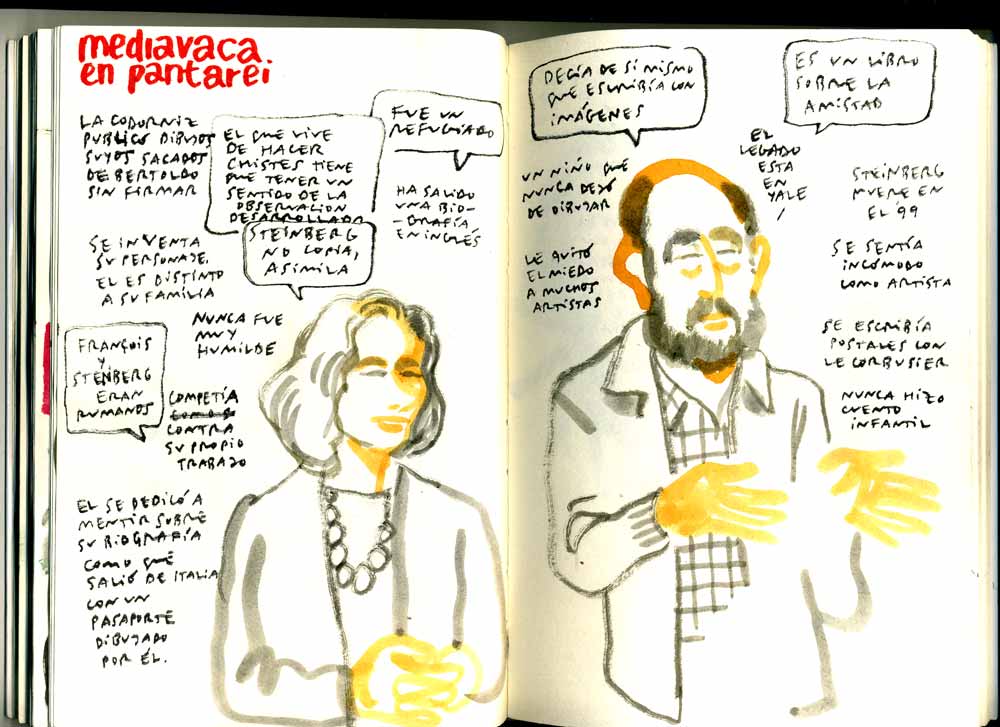 mediavaca
en pantarei
LA CODORNIZ
PUBLICO DIBUJOS
SUYOS SACADOS
DE BERTOLDO
SIN FIRMAR
EL QUE VIVE
DE HACER
CHISTES TIENE
QUE TENER UN
SENTIDO DE LA
OBSERVACION
DESARROLLADO
FUE UN
REFUGIADO
HA SALIDO
UNA BIO-
-GRAFÍA
EN INGLÉS
SE INVENTA
SU PERSONAJE,
EL ES DISTINTO
A SU FAMILIA
STEINBERG
NO COPIA,
ASIMILA
NUNCA FUE
MUY
HUMILDE
FRANÇOIS
Y
STENBERG
ERAN
RUMANOS
COMPETÍA
CONTRA
SU PROPIO
TRABAJO
EL SE DEDICÓ A
MENTIR SOBRE
SU BIOGRAFÍA
COMO QUE
SALIÓ DE ITALIA
CON UN
PASAPORTE
DIBUJADO
POR ÉL.
DECÍA DE SI MISMO
QUE ESCRIBÍA CON
IMÁGENES
ES UN LIBRO
SOBRE LA
AMISTAD
UN NIÑO QUE
NUNCA DEJÓ
DE DIBUJAR
EL
LEGADO
ESTA
EN
YALE
STEINBERG
MUERE EN
EL 99
LE QUITÓ
EL MIEDO
A MUCHOS
ARTISTAS
SE SENTÍA
INCÓMODO
COMO ARTISTA
SE ESCRIBÍA
POSTALES CON
LE CORBUSIER
NUNCA HIZO
CUENTO
INFANTIL